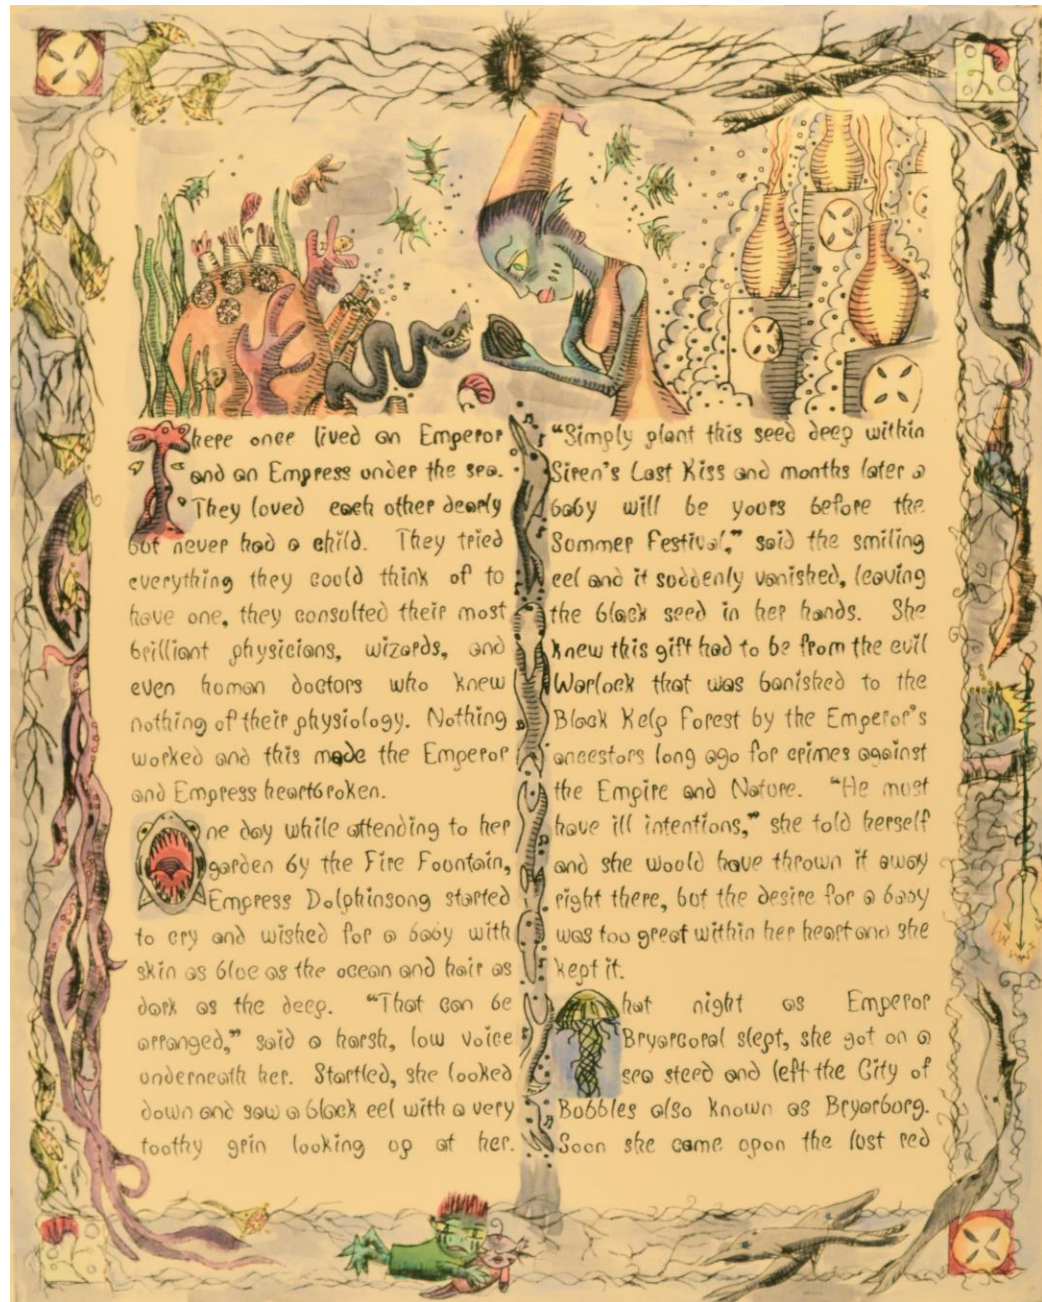 There once lived an Emperor
and an Empress under the sea.
They loved each other dearly
but never had a child. They tried
everything they could think of to
have one, they consulted their most
brilliant physicians, wizards, and
even human doctors who knew
nothing of their physiology. Nothing
worked and this made the Emperor
and Empress heartbroken.
One day while attending to her
garden by the Fire Fountain,
Empress Dolphinsong started
to cry and wished for a baby with
skin as blue as the ocean and hair as
dark as the deep. "That can be
arranged," said a harsh, low voice
underneath her. Startled, she looked
down and saw a black eel with a very
toothy grin looking up at her.
"Simply plant this seed deep within
Siren's Last Kiss and months later a
baby will be yours before the
Summer Festival," said the smiling
eel and it suddenly vanished, leaving
the black seed in her hands. She
knew this gift had to be from the evil
Warlock that was banished to the
Black Kelp Forest by the Emperor's
ancestors long ago for crimes against
the Empire and Nature. "He must
have ill intentions," she told herself
and she would have thrown it away
right there, but the desire for a baby
was too great within her heart and she
kept it.
That night as Emperor
Bryarcoral slept, she got on a
sea steed and left the City of
Bubbles also known as Bryarburg.
Soon she came upon the lust red